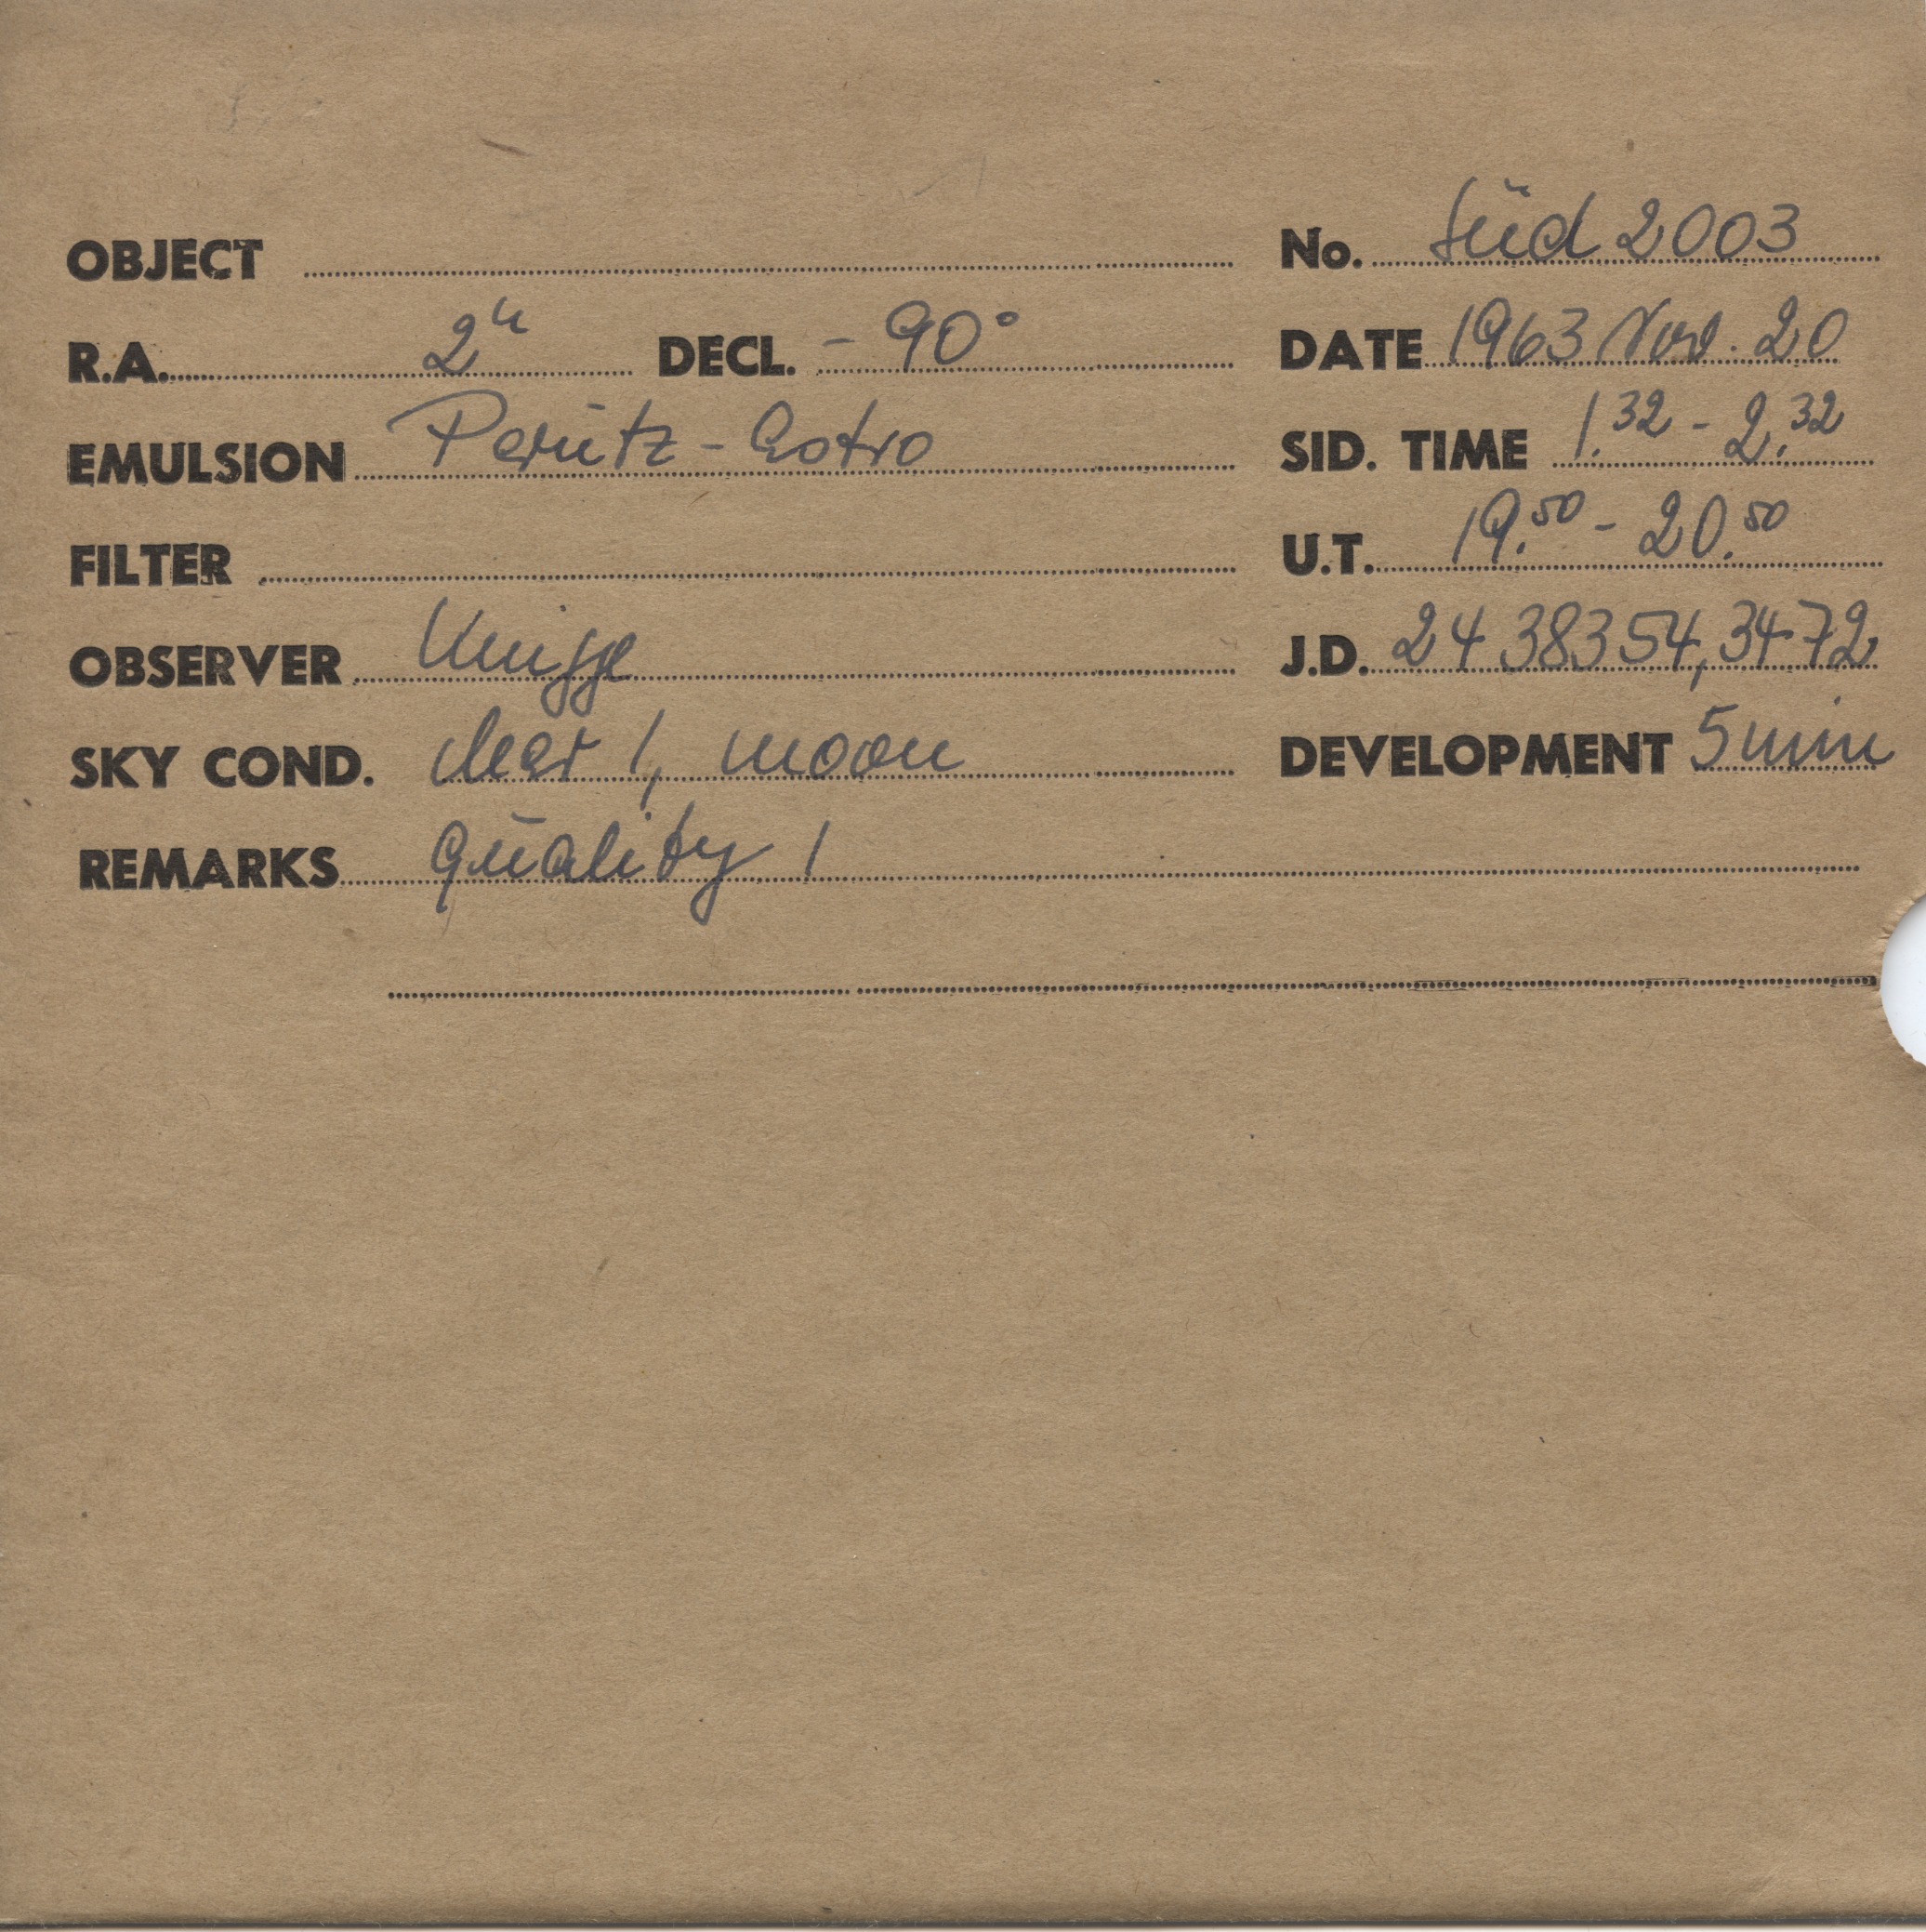 OBJECT
No. Süd 2003
R.A. 2h DECL. - 90°
DATE 1963 Nov. 20
EMULSION Perutz - Astro
SID. TIME 1.32 - 2.32
FILTER
U.T. 19.50 - 20.50
OBSERVER Knigge
J.D. 24 38354,3472
SKY COND. clear 1, moon
DEVELOPMENT 5 min
REMARKS quality 1